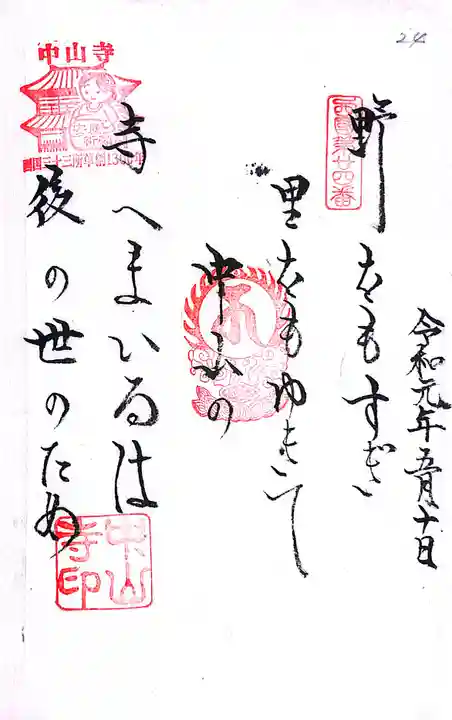 24
令和元年五月十日
西国第廿四番
野をもすぎ
里をもゆきて
中山の
寺へまいるは
後の世のため
中山寺
西国三十三所草創1300年
中山寺印